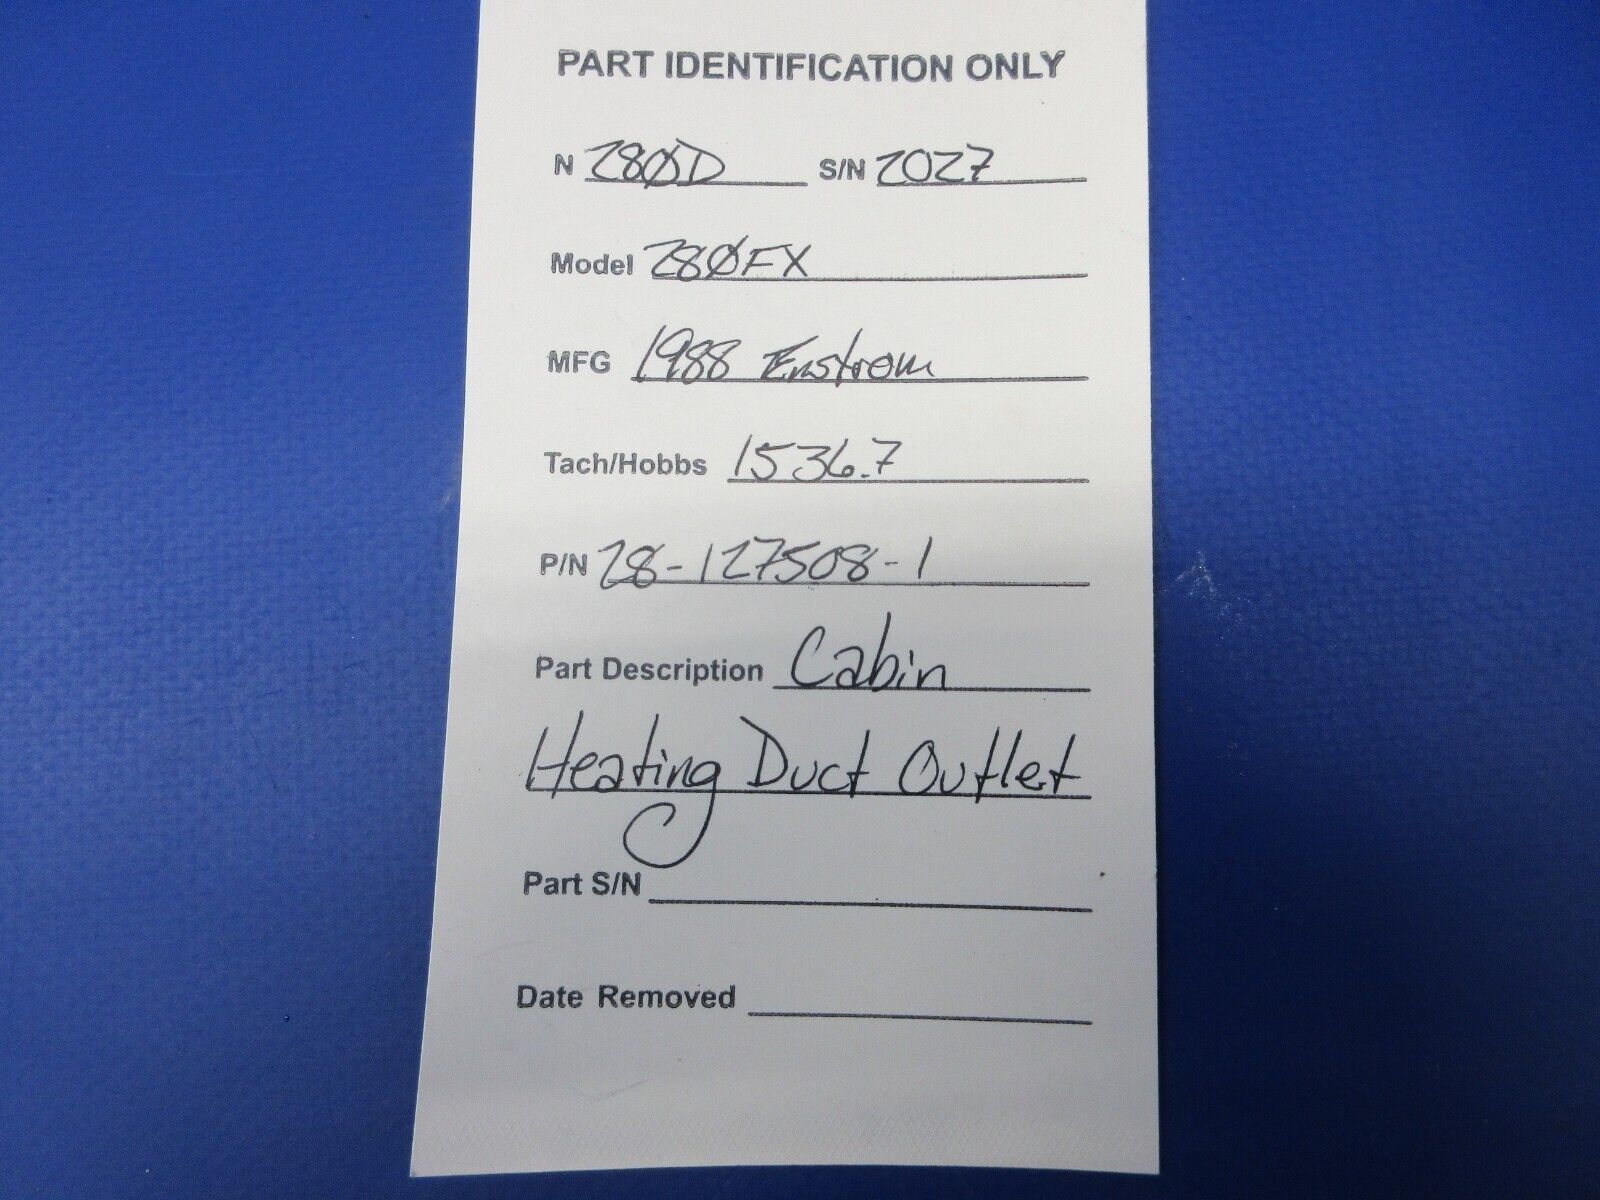 PART IDENTIFICATION ONLY
N 280D S/N 2027
Model 280FX
MFG 1988 Enstrom
Tach/Hobbs 1536.7
P/N 28-127508-1
Part Description Cabin
Heating Duct Outlet
Part S/N
Date Removed